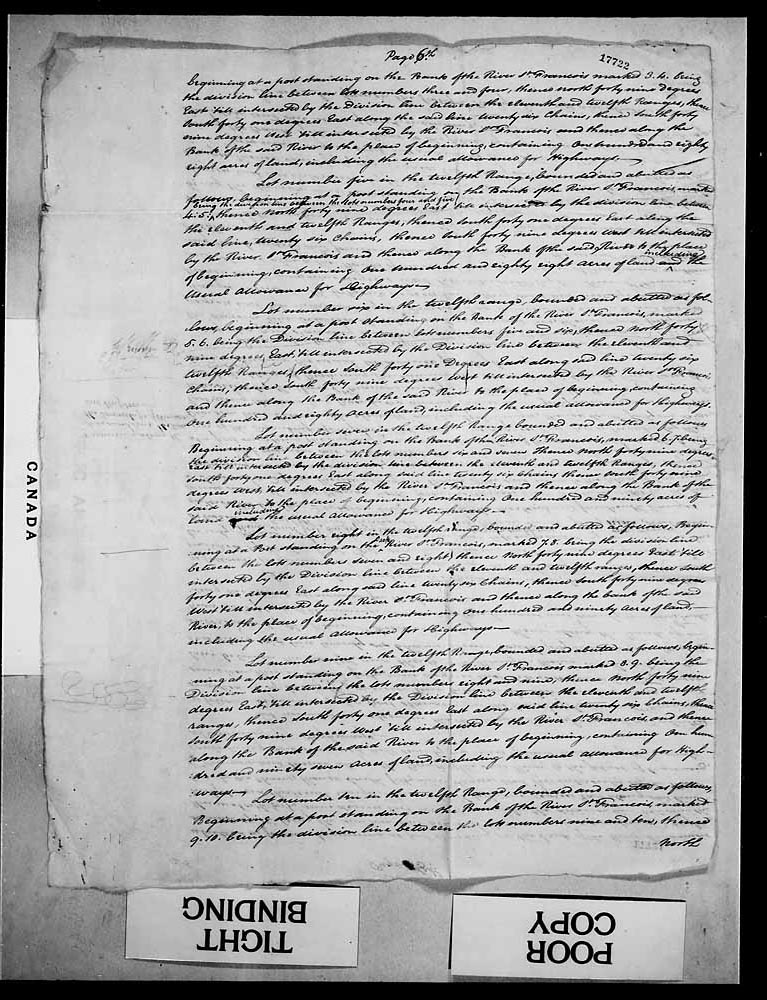 Page 6th
17722
beginning at a post standing on the Bank of the River St Francois marked 3.4. being
the division line between lots numbers three and four, thence north forty nine Degrees
East till intersected by the Division line between the eleventh and twelfth Ranges, thence
South forty one degrees East along the said line twenty six Chains, thence South forty
nine degrees West till intersected by the River St Francois and thence along the
Bank of the said River to the place of beginning, containing One hundred and eighty
eight acres of land, including the usual allowance for Highways.
Lot number five in the twelfth Range, bounded and abutted as
follows, beginning at a post standing on the Bank of the River St Francois, marked
being the division line between the lots numbers four and five
4.5, thence North forty nine degrees East till intersected by the division line between
the eleventh and twelfth Ranges, thence South forty one degrees East along the
said line, twenty six Chains, thence South forty nine degrees West till intersected
by the River St Francois and thence along the Bank of the said River to the place
including
of beginning, containing One hundred and eighty eight acres of land and the
Usual Allowance for Highways
Lot number six in the twelfth range, bounded and abutted as fol-
lows, beginning at a post standing on the Bank of the River St Francois, marked
5.6. being the Division line between lots numbers five and six, thence North forty
nine degrees, East, till intersected by the Division line between the eleventh and
twelfth Ranges, thence South forty one Degrees East along said line twenty six
Chains, thence South forty nine degrees West till intersected by the River St Francois
and thence along the Bank of the said River to the place of beginning, containing
One hundred and eighty acres of land, including the usual allowance for Highways.
Lot number seven in the twelfth Range bounded and abutted as follows
Beginning at a post standing on the Bank of the River St Francois, marked 6.7. being
the division line between the lots numbers six and seven thence North forty nine degrees
East till intersected by the division line between the eleventh and twelfth Ranges, thence
South forty one degrees East along said line twenty six chains, thence South forty nine
degrees West till intersected by the River St Francois and thence along the Bank of the
said River to the place of beginning, containing One hundred and ninety acres of
including
land and the usual Allowance for Highways
Lot number eight in the twelfth Range, bounded and abutted as follows, Begin-
ning at a Post standing on the River St Francois, marked 7.8. being the division line
between the lots numbers seven and eight, thence North forty nine degrees East till
intersected by the Division line between the eleventh and twelfth ranges, thence South
forty one degrees East along said line twenty six Chains, thence South forty nine degrees
West till intersected by the River St Francois and thence along the bank of the said
River, to the place of beginning, containing One hundred and ninety acres of land,
including the usual allowance for Highways
Lot number nine in the twelfth Range, bounded and abutted as follows, begin-
ning at a post standing on the Bank of the River St Francois marked 8.9. being the
Division line between the lots numbers eight and nine, thence North forty nine
degrees East, till intersected by the Division line between the eleventh and twelfth
ranges, thence South forty one degrees East along said line twenty six Chains, thence
South forty nine degrees West till intersected by the River St Francois and thence
along the Bank of the said River to the place of beginning, containing One hun-
dred and ninety seven acres of land, including the usual allowance for High-
ways
Lot number ten in the twelfth Range, bounded and abutted as follows,
Beginning at a post standing on the Bank of the River St Francois marked
9.10. being the division line between the lots numbers nine and ten, thence
North
CANADA
TIGHT
BINDING
POOR
COPY